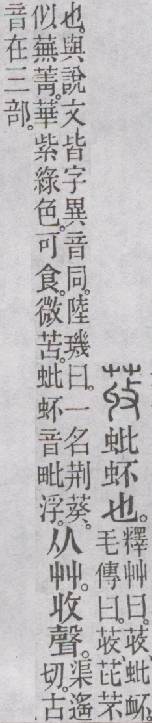 荍蚍𧉈也。釋艸曰。荍、蚍衃。
毛傳曰。荍、芘芣
也。與說文皆字異音同。陸璣曰。一名荆葵。
似蕪菁。華紫綠色。可食。微苦。蚍𧉈音毗浮。
从艸。收聲。渠遙
切。古
音在三部。